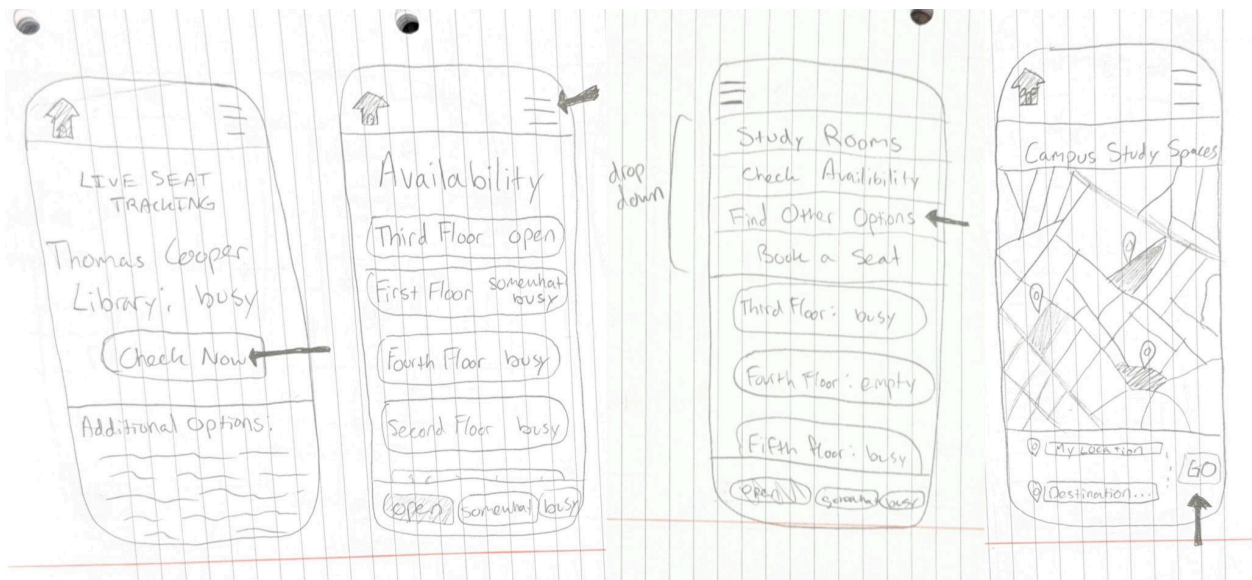 LIVE SEAT
TRACKING
Thomas Cooper
Library: busy
Check Now
Additional Options:
Availability
Third Floor open
First Floor somewhat
busy
Fourth Floor busy
Second Floor busy
open somewhat busy
drop
down
Study Rooms
Check Availibility
Find Other Options
Book a Seat
Third Floor: busy
Fourth Floor: empty
Fifth floor: busy
open somewhat busy
Campus Study Spaces
My Location
Destination...
GO